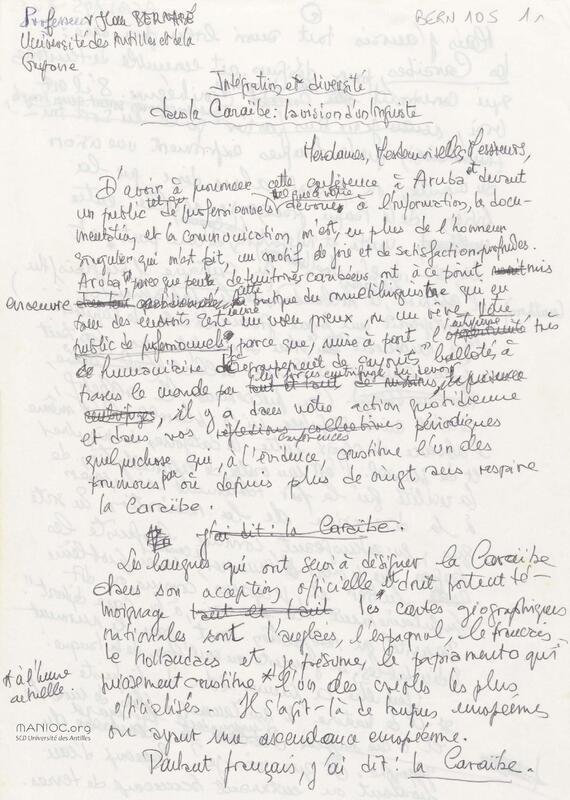 Professeur Jean BERNABÉ
BERN 105 1r
Université des Antilles et de la
Guyane
Intégration et diversité
dans la Caraïbe : la vision d'un linguiste
Mesdames, Mesdemoiselles, Messieurs,
D'avoir à prononcer cette conférence à Aruba et devant
un public de professionnels tel que le vôtre dévoués à l'information, la docu-
mentation et la communication m'est, en plus de l'honneur
singulier qui m'est fait, un motif de joie et de satisfaction profondes.
Aruba parce que peu de territoires caribéens ont à ce point mis
en oeuvre cette pratique du multilinguisme qui en
tant des endroits reste un voeu pieux, ou un rêve.
public de professionnels, parce que, mise à part l' très
humanitaire ballotés à
travers le monde par les forces centrifuges
il y a dans votre action quotidienne
et dans vos conférences périodiques
quelque chose qui, à l'évidence, constitue l'un des
poumons par où depuis plus de vingt ans respire
la Caraïbe.
j'ai dit : la Caraïbe.
Les langues qui ont servi à désigner la Caraïbe
dans son acception officielle et dont portent té-
moignage les cartes géographiques
nationales sont l'anglais, l'espagnol, le français
le hollandais et, je présume, le papiamento qui
puissamment constitue * l'un des créoles les plus
* à l'heure
actuelle.
officialisés. Il s'agit-là de langues européennes
ou ayant une ascendance européenne.
Parlant français, j'ai dit : la Caraïbe.
MANIOC.org
SCD Université des Antilles